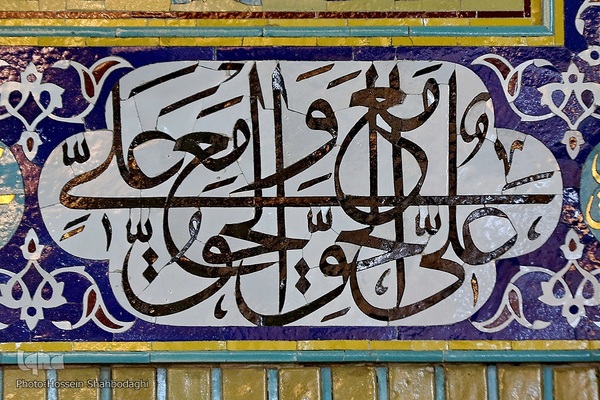 علیّ مع الحقّ و الحقّ مع علی
iqna
Photo:Hossein Shahbodaghi